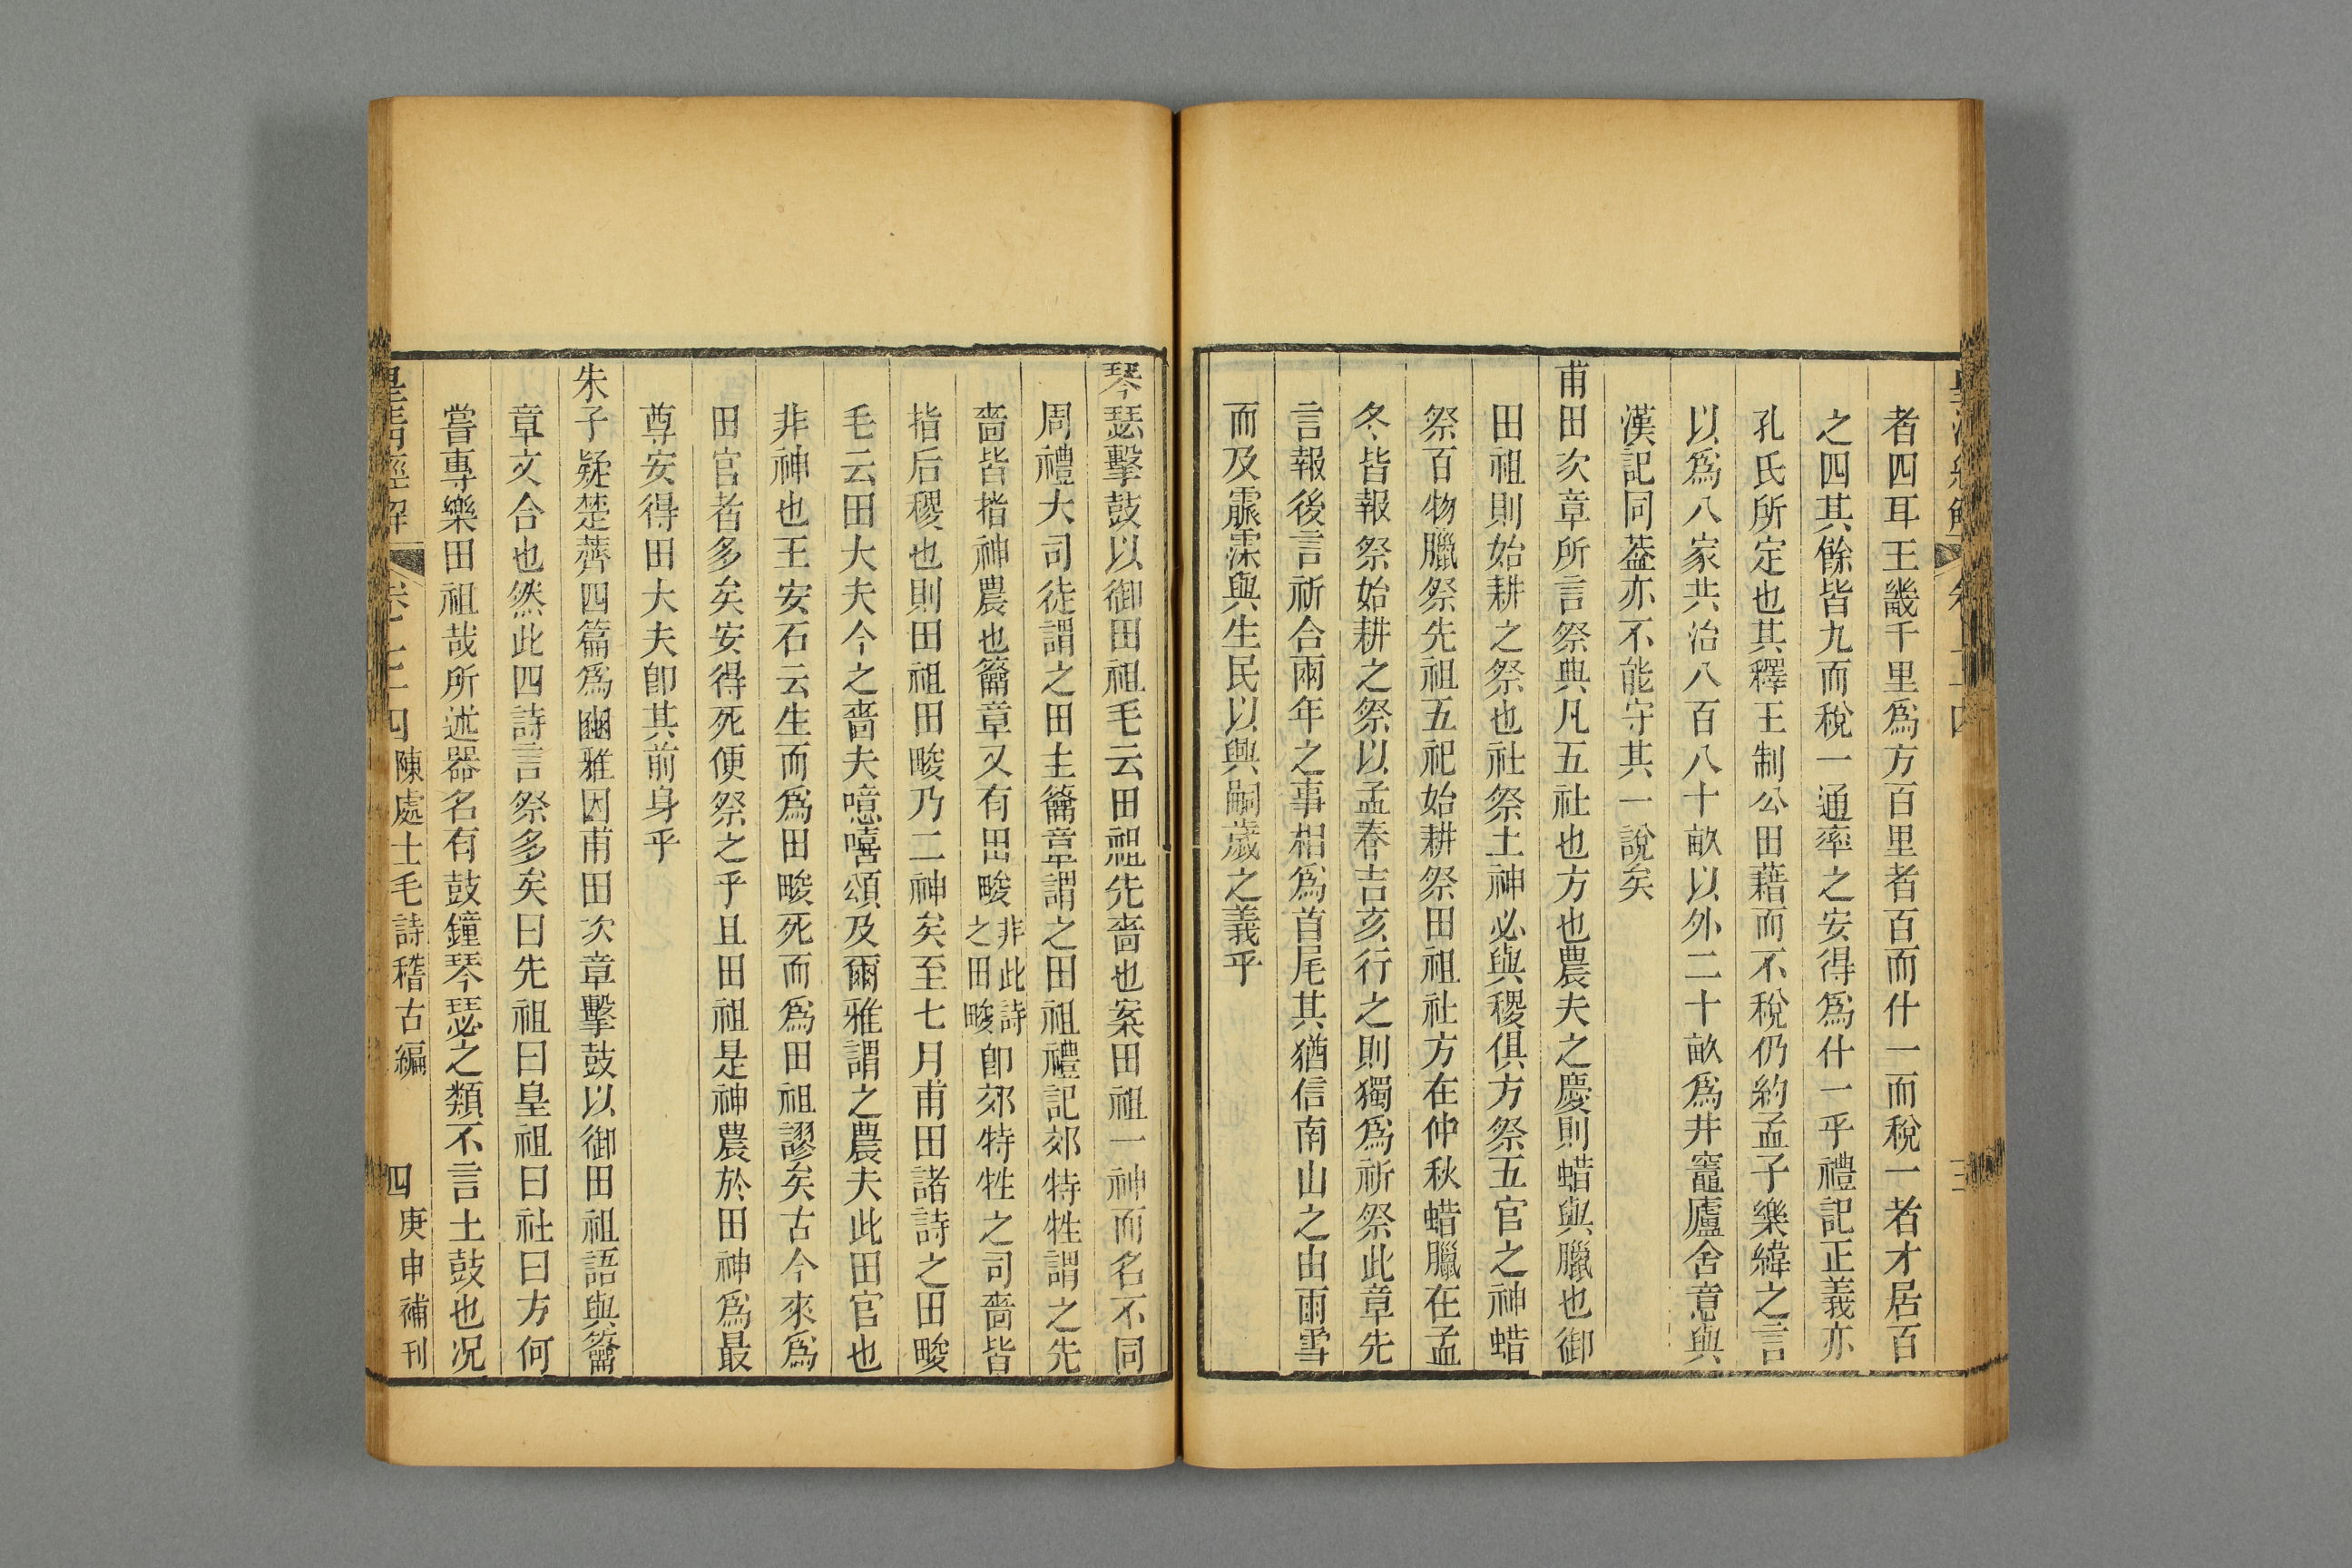 者四耳王畿千里爲方百里者百而什一而稅一者才居百
之四其餘皆九而稅一通率之安得爲什一乎禮記正義亦
孔氏所定也其釋王制公田藉而不稅仍約孟子樂緯之言
以爲八家共治八百八十畝以外二十畝爲井竈廬舍意與
漢記同葢亦不能守其一說矣
甫田次章所言祭典凡五社也方也農夫之慶則蜡與臘也御
田祖則始耕之祭也社祭土神必與稷俱方祭五官之神蜡
祭百物臘祭先祖五祀始耕祭田祖社方在仲秋蜡臘在孟
冬皆報祭始耕之祭以孟春吉亥行之則獨爲祈祭此章先
言報後言祈合兩年之事相爲首尾其猶信南山之由雨雪
而及霢霂與生民以興嗣歲之義乎
琴瑟擊鼓以御田祖毛云田祖先嗇也案田祖一神而名不同
周禮大司徒謂之田主籥章謂之田祖禮記郊特牲謂之先
嗇皆指神農也籥章又有田畯非此詩之田畯卽郊特牲之司嗇皆
指后稷也則田祖田畯乃二神矣至七月甫田諸詩之田畯
毛云田大夫今之嗇夫噫嘻頌及爾雅謂之農夫此田官也
非神也王安石云生而爲田畯死而爲田祖謬矣古今來爲
田官者多矣安得死便祭之乎且田祖是神農於田神爲最
尊安得田大夫卽其前身乎
朱子疑楚薺四篇爲豳雅因甫田次章擊鼓以御田祖語與籥
章文合也然此四詩言祭多矣曰先祖曰皇祖曰社曰方何
嘗專樂田祖哉所述器名有鼓鐘琴瑟之類不言土鼓也况
皇淸經解 卷七十四 陳處士毛詩稽古編 四 庚申補刊